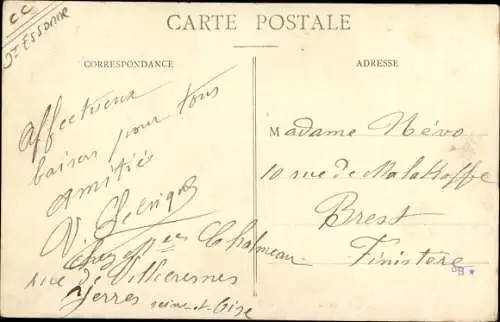 CC
Dt Essonne
CARTE POSTALE
CORRESPONDANCE
ADRESSE
Affectueux
baisers pour tous
Amitiés
V.
Chez Mme Chalmeau
rue de Villecresnes
Yerres Seine-et-Oise
Madame Névo
10 rue de Malakoffe
Brest
Finistère
B *